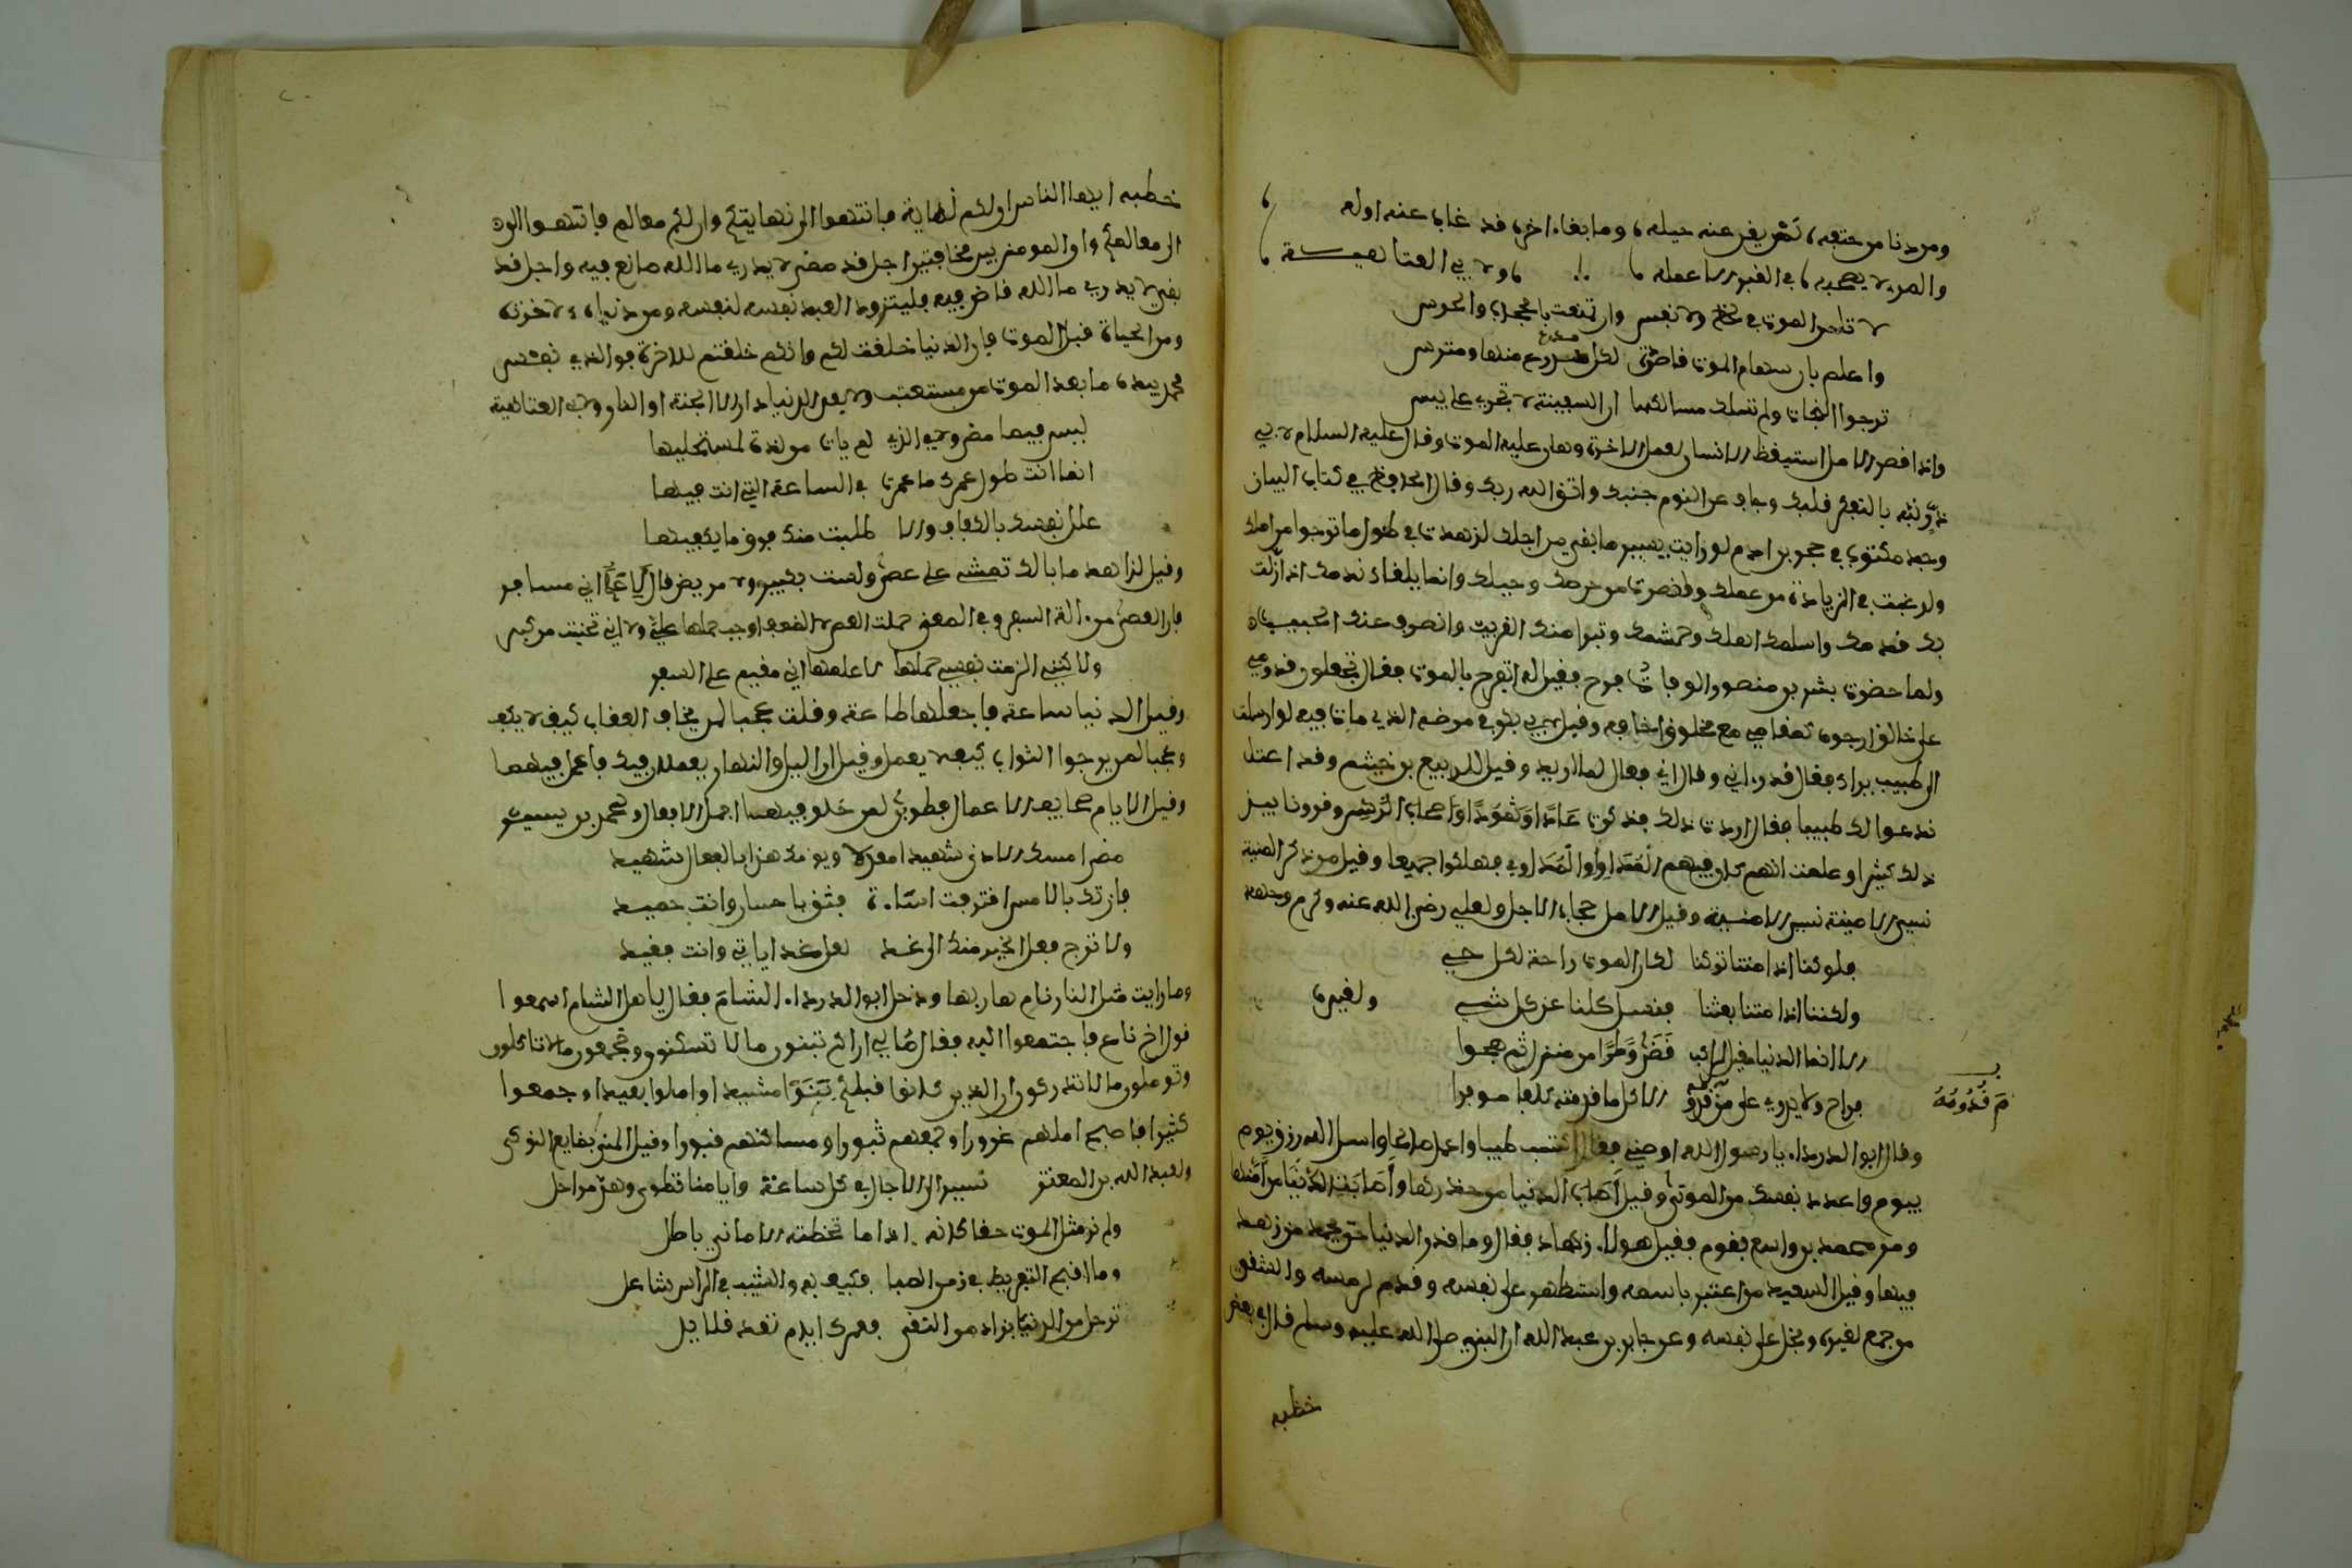 ومن دنا من حتفه، تحير يفر عنه حيله، وما بقاء اخر، قد غاب عنه اوله
والمرء لا يصحبه، في القبر الا عمله، ولابي العتاهيـــة
لا تامن الموت في لحظ ولا نفس وان تمنعت بالحجاب والحرس
واعلم بان سهام الموت قاصدة لكل مدرع منها ومترس
ترجوا النجات ولم تسلك مسالكها ان السفينة لا تجري على يبس
واذا قصر الامل استيقظ الانسان لعمل الاخرة وهان عليه الموت وقال عليه السلام لابي
ذر نبه بالتفكر قلبك وجاف عن النوم جنبك واتق الله ربك وقال الجاحظ في كتاب البيان
وجد مكتوب في حجر ابن ادم لو رايت يسير ما بقي من اجلك لزهدت في طول ما ترجوا من املك
ولرغبت في الزيادة من عملك وقصرت من حرصك وحيلك وانما يلقاك ندمك اذا زلت
بك قدمك واسلمك اهلك وحشمك وتبرا منك القريب وانصرف عنك الحبيب
ولما حضرت بشر بن منصور الوفات فرح فقيل له اتفرح بالموت فقال اتجعلون قدومي
على خالق ارجوه كمقامي مع مخلوق اخافه وقيل لابي بكر في مرضه الذي مات فيه لو ارسلت
الى طبيب يراك فقال قد رءاني وقال اني فعال لما اريد وقيل للربيع بن خيثم وقد اعتل
ندعوا لك طبيبا فقال اردت ذلك فذكرت عَادًا وَثمودًا وَاصحاب الرَّسِّ وقرونا بين
ذلك كثيرا وعلمت انهم كان فيهم المُداوِي والمُداوى فهلكوا جميعا وقيل من ذكر المنية
نسي الامنية وقيل الامل حجاب الاجل ولعلي رضي الله عنه وكرم وجهه
فلو كنا اذا متنا تركنا لكان الموت راحة لكل حي
ولكننا اذا متنا بعثنا فنسل كلنا عن كل شي ولغيره
الا انما الدنيا مقيل لراكب قَضَى وَطَرًا من منزل ثم هجرا
فراح ولا يدري على مَ قدومُهُ الا كل ما قدمته تلقا موفرا
مَ قُدُومُهُ
وقال ابو الدرداء يا رسول الله اوصني فقال اكتسب طيبا واعمل صالحا واسل الله رزق يوم
بيوم واعدد نفسك من الموتى وقيل اصاب الدنيا من حذرها وَأصابت الدنيا من أمنها
ومر محمد بن واسع بقوم فقيل هولاء زهاد فقال وما قدر الدنيا حتى يحمد من زهد
فيها وقيل السعيد من اعتبر بامسه واستظهر على نفسه وقدم لرمسه والشقي
من جمع لغيره وبخل على نفسه وعن جابر بن عبد الله ان النبي صلى الله عليه وسلم قال في بعض
خطبه
خطبه ايها الناس ان لكم نهاية فانتهوا الى نهايتكم وان لكم معالم فانتهوا
الى معالمكم وان المومن بين مخافتين اجل قد مضى لا يدري ما الله صانع فيه واجل قد
بقي لا يدري ما الله قاض فيه فليتزود العبد نفسه لنفسه ومن دنياه لاخرته
ومن الحياة قبل الموت فان الدنيا خلقت لكم وانكم خلقتم للاخرة فوالذي نفس
محمد بيده ما بعد الموت من مستعتب ولا بعد الدنيا دار الا الجنة او النار ولابي العتاهية
ليس فيما مضى ولا في الذي لم يات من لذة لمستحليها
انما انت طول عمرك ما عمرت في الساعة التي انت فيها
علل نفسك بالكفاف والا طلبت منك فوق ما يكفيها
وقيل لزاهد ما بالك تمشي على عصى ولست بكبير ولا مريض قال اني مسافر
فان العصى من ءالة السفر وفي المعنى حملت العصى لا الضعف اوجب حملها علي ولا اني تحنيت من كبر
ولاكنني الزمت نفسي حملها لاعلمها اني مقيم على السفر
وقيل الدنيا ساعة فاجعلها طاعة وقلت عجبا لمن يخاف العقاب كيف لا يكف
وعجبا لمن يرجوا الثواب كيف لا يعمل وقيل ان اليل والنهار يعملان فيك فاعمل فيهما
وقيل الايام صحايف الاعمال فطوبى لمن خلد فيها اجمل الافعال ولمحمد بن يسير
مضى امسك الادنى شهيدا معدلا ويومك هذا بالفعال شهيد
فان تك بالامس اقترفت اساءة فثن باحسان وانت حميد
ولا ترج فعل الخير منك الى غد لعل غدا ياتي وانت فقيد
وما رايت مثل النار نام هاربها ودخل ابو الدرداء الشام فقال يا اهل الشام اسمعوا
قول اخ ناصح فاجتمعوا اليه فقال مالي اراكم تبنون ما لا تسكنون وتجمعون ما لا تاكلون
وتوملون ما لا تدركون ان الذين كانوا قبلكم بَنَوْا مشيدا واملوا بعيدا وجمعوا
كثيرا فاصبح املهم غرورا وجمعهم ثبورا ومساكنهم قبورا وقيل المنى بضايع النوكى
ولعبد الله بن المعتز نسير الى الاجال في كل ساعة وايامنا تطوى وهن مراحل
ولم نر مثل الموت حقا كانه اذا ما تخطته الاماني باطل
وما اقبح التفريط في زمن الصبا فكيف به والشيب في الراس شاعل
ترحل من الدنيا بزاد من التقى فعمرك ايام تعد قلايل